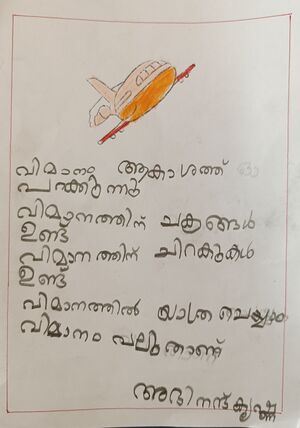 വിമാനം ആകാശത്ത്
പറക്കുന്നു
വിമാനത്തിന് ചക്രങ്ങൾ
ഉണ്ട്
വിമാനത്തിന് ചിറകുകൾ
ഉണ്ട്
വിമാനത്തിൽ യാത്ര ചെയ്യാം
വിമാനം വലുതാണ്
അഭിനന്ദ് കൃഷ്ണ